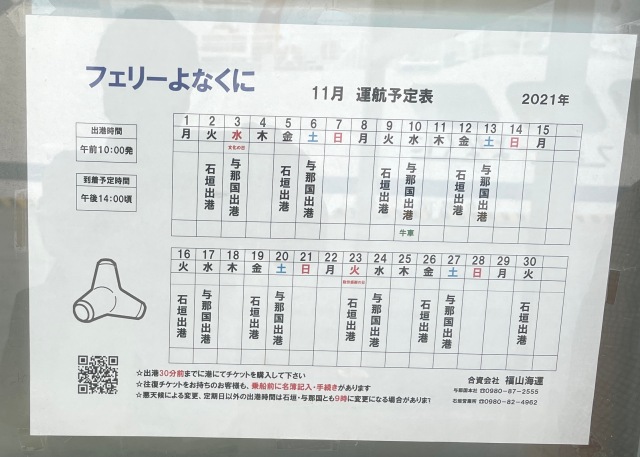 フェリーよなくに
11月 運航予定表
2021年
出港時間
午前10:00発
到着予定時間
午後14:00頃
1 2 3 4 5 6 7 8 9 10 11 12 13 14 15
月 火 水 木 金 土 日 月 火 水 木 金 土 日 月
文化の日
石垣出港 与那国出港 石垣出港 与那国出港 石垣出港 与那国出港 石垣出港 与那国出港
牛車
16 17 18 19 20 21 22 23 24 25 26 27 28 29 30
火 水 木 金 土 日 月 火 水 木 金 土 日 月 火
勤労感謝の日
石垣出港 与那国出港 石垣出港 与那国出港 石垣出港 与那国出港 石垣出港 与那国出港 石垣出港
☆出港30分前までに港にてチケットを購入して下さい
☆往復チケットをお持ちのお客様も、乗船前に名簿記入・手続きがあります
☆悪天候による変更、定期日以外の出港時間は石垣・与那国とも9時に変更になる場合があります
合資会社 福山海運
与那国本社 ☎0980-87-2555
石垣営業所 ☎0980-82-4962